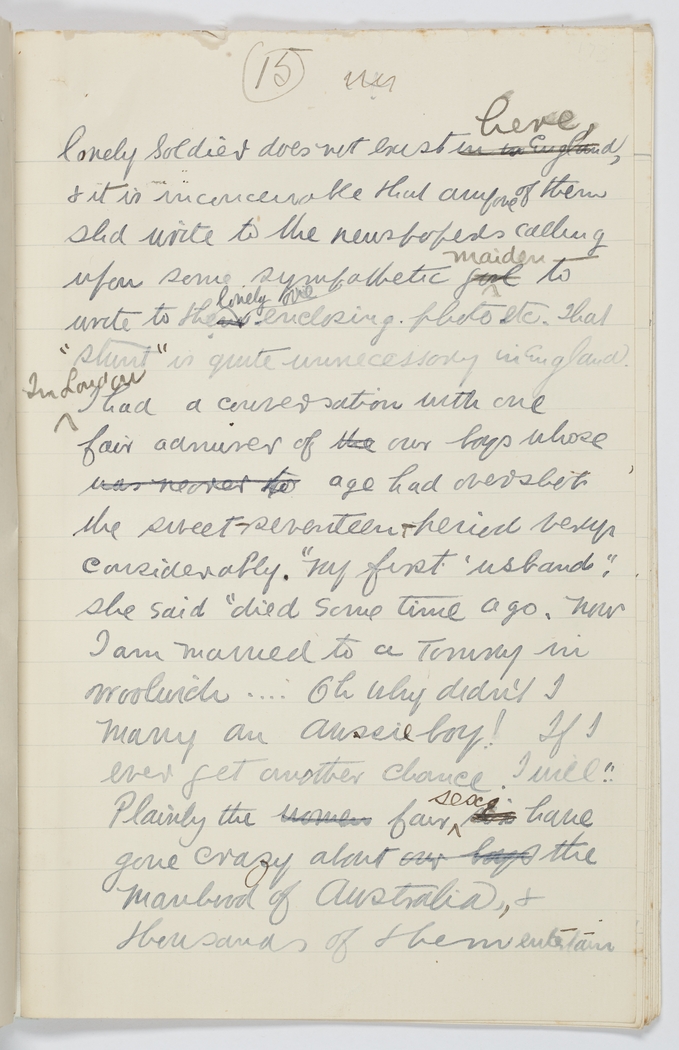 15
here,
lonely soldier does not exist in in England,
& it is inconceivable that any one of them
shd write to the newspapers calling
maiden
upon some sympathetic girl to
lonely one
write to the enclosing photo etc. That
"stunt" is quite unnecessary in England.
In London
I had a conversation with one
fair admirer of the our boys whose
was nearer to age had overshot
the sweet-seventeen-period very
considerably. "My first 'usband",
she said "died some time ago. Now
I am married to a Tommy in
Woolwich .... Oh why didn't I
marry an Aussie boy! If I
ever get another chance. I will."
sex
Plainly the women fair have
gone crazy about our boys the
manhood of Australia, &
thousands of them entertain